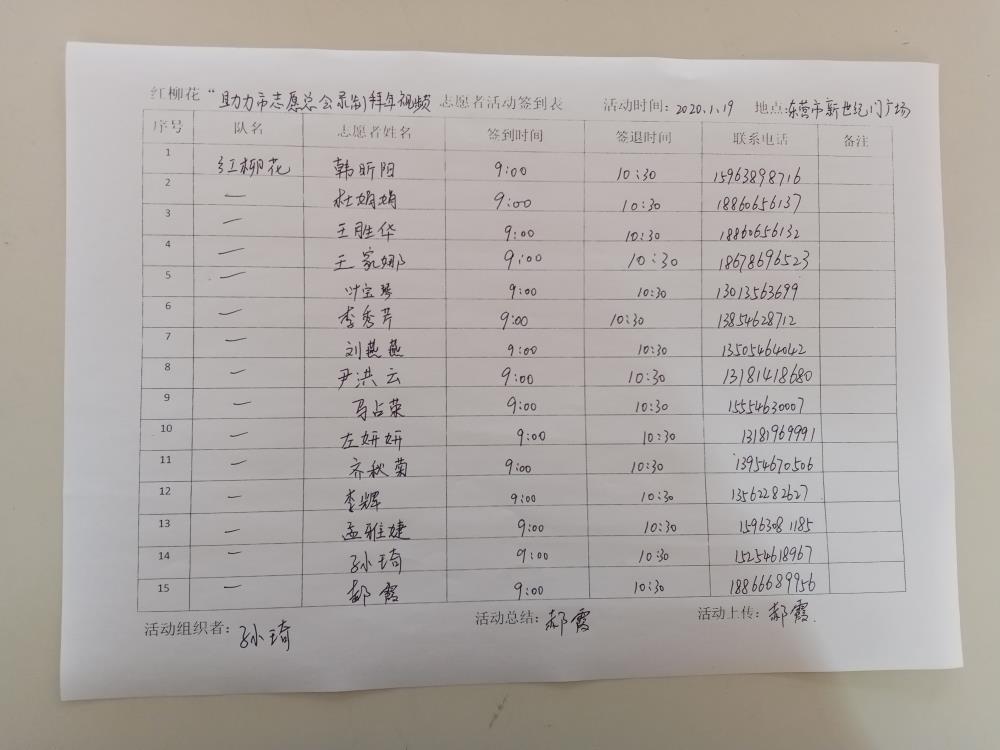 红柳花“助力市志愿总会录制拜年视频 志愿者活动签到表 活动时间：2020.1.19 地点：东营市新世纪门广场
序号 队名 志愿者姓名 签到时间 签退时间 联系电话 备注
1 红柳花 韩昕阳 9:00 10:30 15963898716
2 — 杜娟娟 9:00 10:30 18860656137
3 — 王胜华 9:00 10:30 18860656132
4 — 王家娜 9:00 10:30 18678696523
5 — 叶宝琴 9:00 10:30 13013563699
6 — 李秀芹 9:00 10:30 13854628712
7 — 刘燕燕 9:00 10:30 13505464042
8 — 尹洪云 9:00 10:30 13181418680
9 — 马占荣 9:00 10:30 15554630007
10 — 左妍妍 9:00 10:30 13181969991
11 — 齐秋菊 9:00 10:30 13954670506
12 — 李辉 9:00 10:30 13562282627
13 — 孟雅婕 9:00 10:30 15963081185
14 — 孙琦 9:00 10:30 15254618967
15 — 郝霞 9:00 10:30 18866689956
活动组织者：孙琦 活动总结：郝霞 活动上传：郝霞.